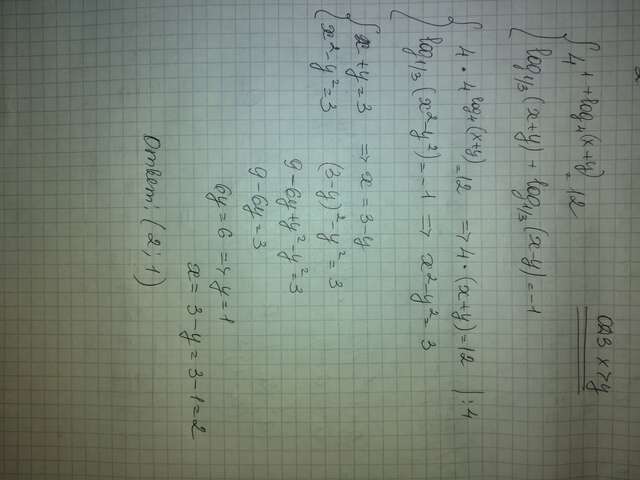 ОДЗ x>y
{ 4^(1+log₄(x+y)) = 12
{ log₁/₃(x+y) + log₁/₃(x-y) = -1
{ 4 · 4^(log₄(x+y)) = 12 => 4 · (x+y) = 12 |:4
{ log₁/₃(x²-y²) = -1 => x²-y² = 3
{ x+y=3 => x=3-y
{ x²-y²=3 (3-y)²-y²=3
9-6y+y²-y²=3
9-6y=3
6y=6 => y=1
x=3-y=3-1=2
Ответ: (2;1)